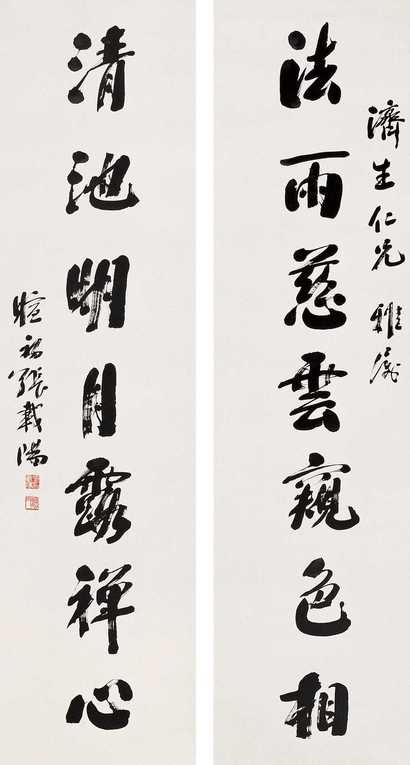 濟生仁兄雅屬
法雨慈雲窺色相
清池明月露禪心
暄初張載陽